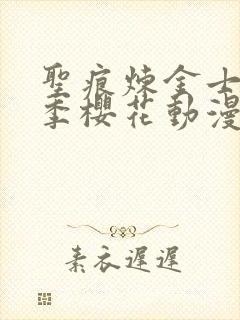 聖痕煉金士
季櫻花動漫
素衣遲遲